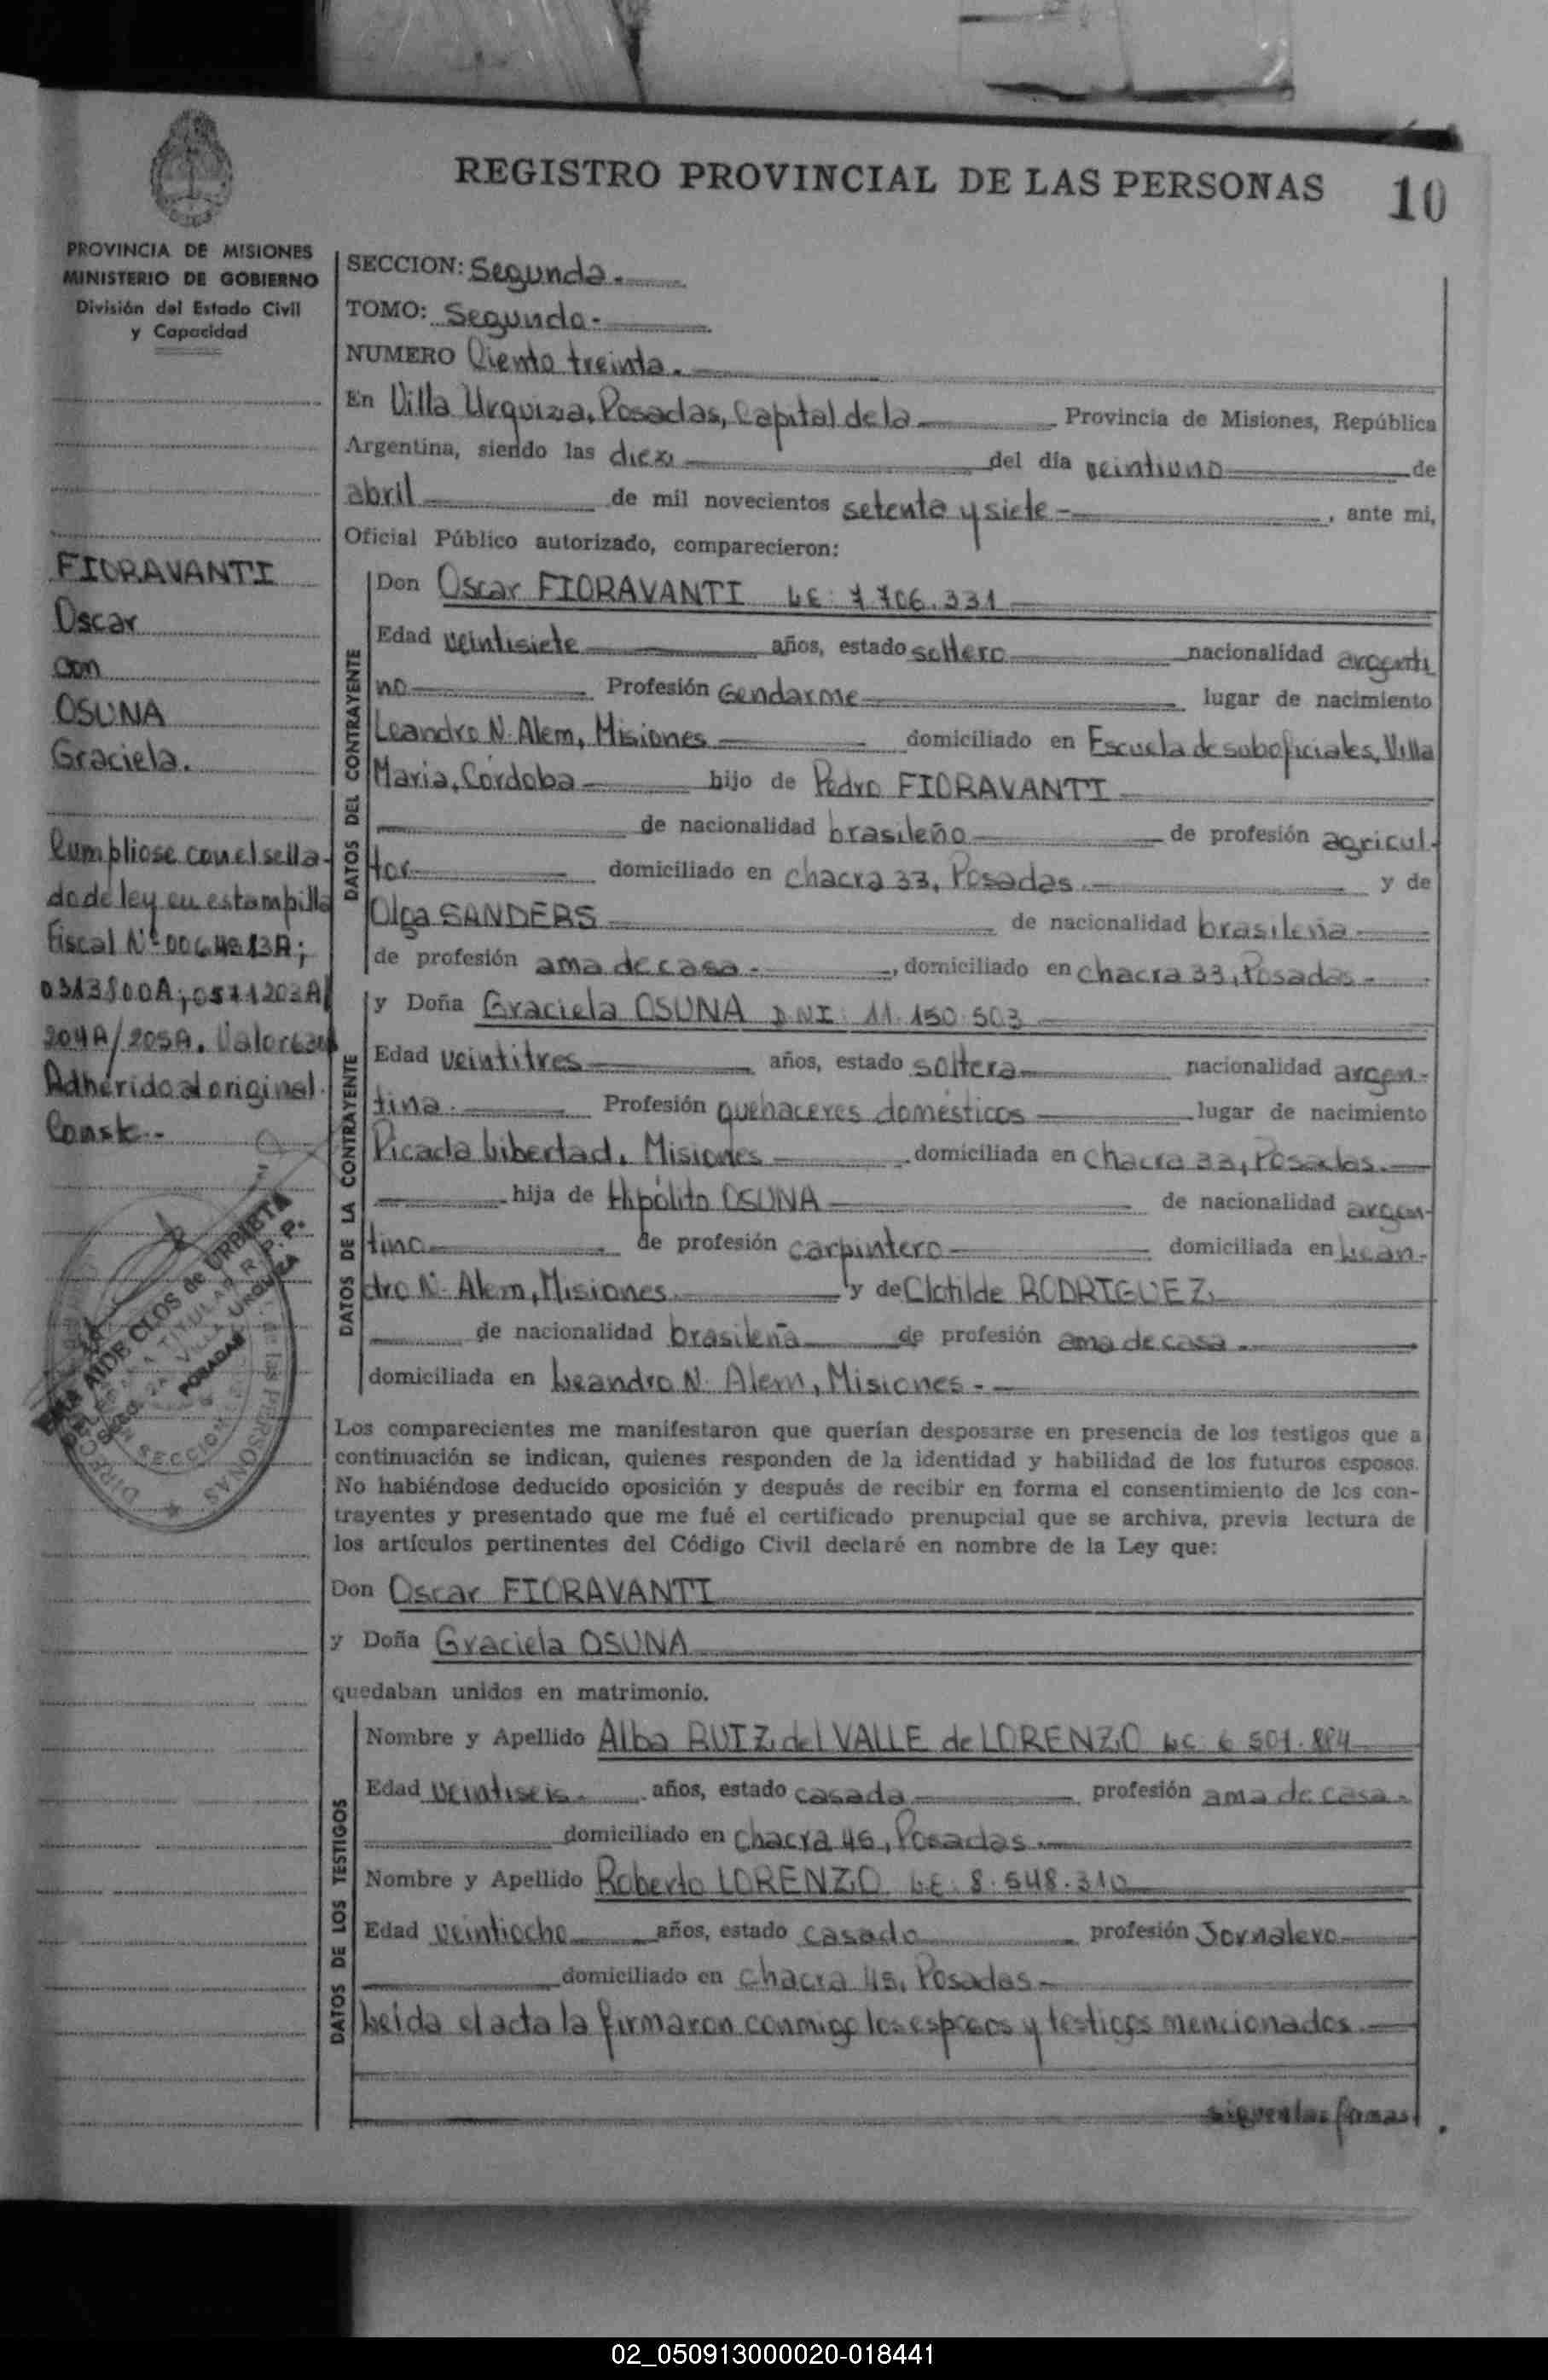 REGISTRO PROVINCIAL DE LAS PERSONAS 10
PROVINCIA DE MISIONES
MINISTERIO DE GOBIERNO
División del Estado Civil
y Capacidad
FIORAVANTI
Oscar
con
OSUNA
Graciela.
Cumpliose con el sella-
do de ley en estampilla
Fiscal Nº
Adherido al original.
Conste.-
SECCION: Segunda.
TOMO: Segundo-
NUMERO Ciento treinta.
En Villa Urquiza, Posadas, Capital de la Provincia de Misiones, República
Argentina, siendo las diez del día veintiuno de
abril de mil novecientos setenta y siete-, ante mi,
Oficial Público autorizado, comparecieron:
DATOS DEL CONTRAYENTE
Don Oscar FIORAVANTI LE: 7.706.331
Edad veintisiete años, estado soltero nacionalidad argenti
no Profesión Gendarme lugar de nacimiento
Leandro N. Alem, Misiones domiciliado en Escuela de suboficiales, Villa
Maria, Córdoba hijo de Pedro FIORAVANTI
de nacionalidad brasileño de profesión agricul-
tor domiciliado en chacra 33, Posadas. y de
Olga SANDERS de nacionalidad brasileña
de profesión ama de casa-, domiciliado en chacra 33, Posadas-
DATOS DE LA CONTRAYENTE
y Doña Graciela OSUNA DNI: 11.150.503
Edad veintitres años, estado soltera nacionalidad argen-
tina. Profesión quehaceres domésticos lugar de nacimiento
Picada Libertad, Misiones domiciliada en chacra 33, Posadas.
hija de Hipólito OSUNA de nacionalidad argen-
tino de profesión carpintero domiciliada en Lean-
dro N. Alem, Misiones y de Clotilde RODRIGUEZ
de nacionalidad brasileña de profesión ama de casa.
domiciliada en Leandro N. Alem, Misiones-
Los comparecientes me manifestaron que querían desposarse en presencia de los testigos que a
continuación se indican, quienes responden de la identidad y habilidad de los futuros esposos.
No habiéndose deducido oposición y después de recibir en forma el consentimiento de los con-
trayentes y presentado que me fué el certificado prenupcial que se archiva, previa lectura de
los artículos pertinentes del Código Civil declaré en nombre de la Ley que:
Don Oscar FIORAVANTI
y Doña Graciela OSUNA
quedaban unidos en matrimonio.
DATOS DE LOS TESTIGOS
Nombre y Apellido Alba RUIZ del VALLE de LORENZO LC 6 501.884
Edad veintiseis. años, estado casada profesión ama de casa.
domiciliado en chacra 45, Posadas.
Nombre y Apellido Roberto LORENZO LE: 8.548.310
Edad veintiocho años, estado casado profesión Jornalero
domiciliado en chacra 45, Posadas-
Leida el acta la firmaron conmigo los esposos y testigos mencionados.
siguen las firmas
02_050913000020-018441